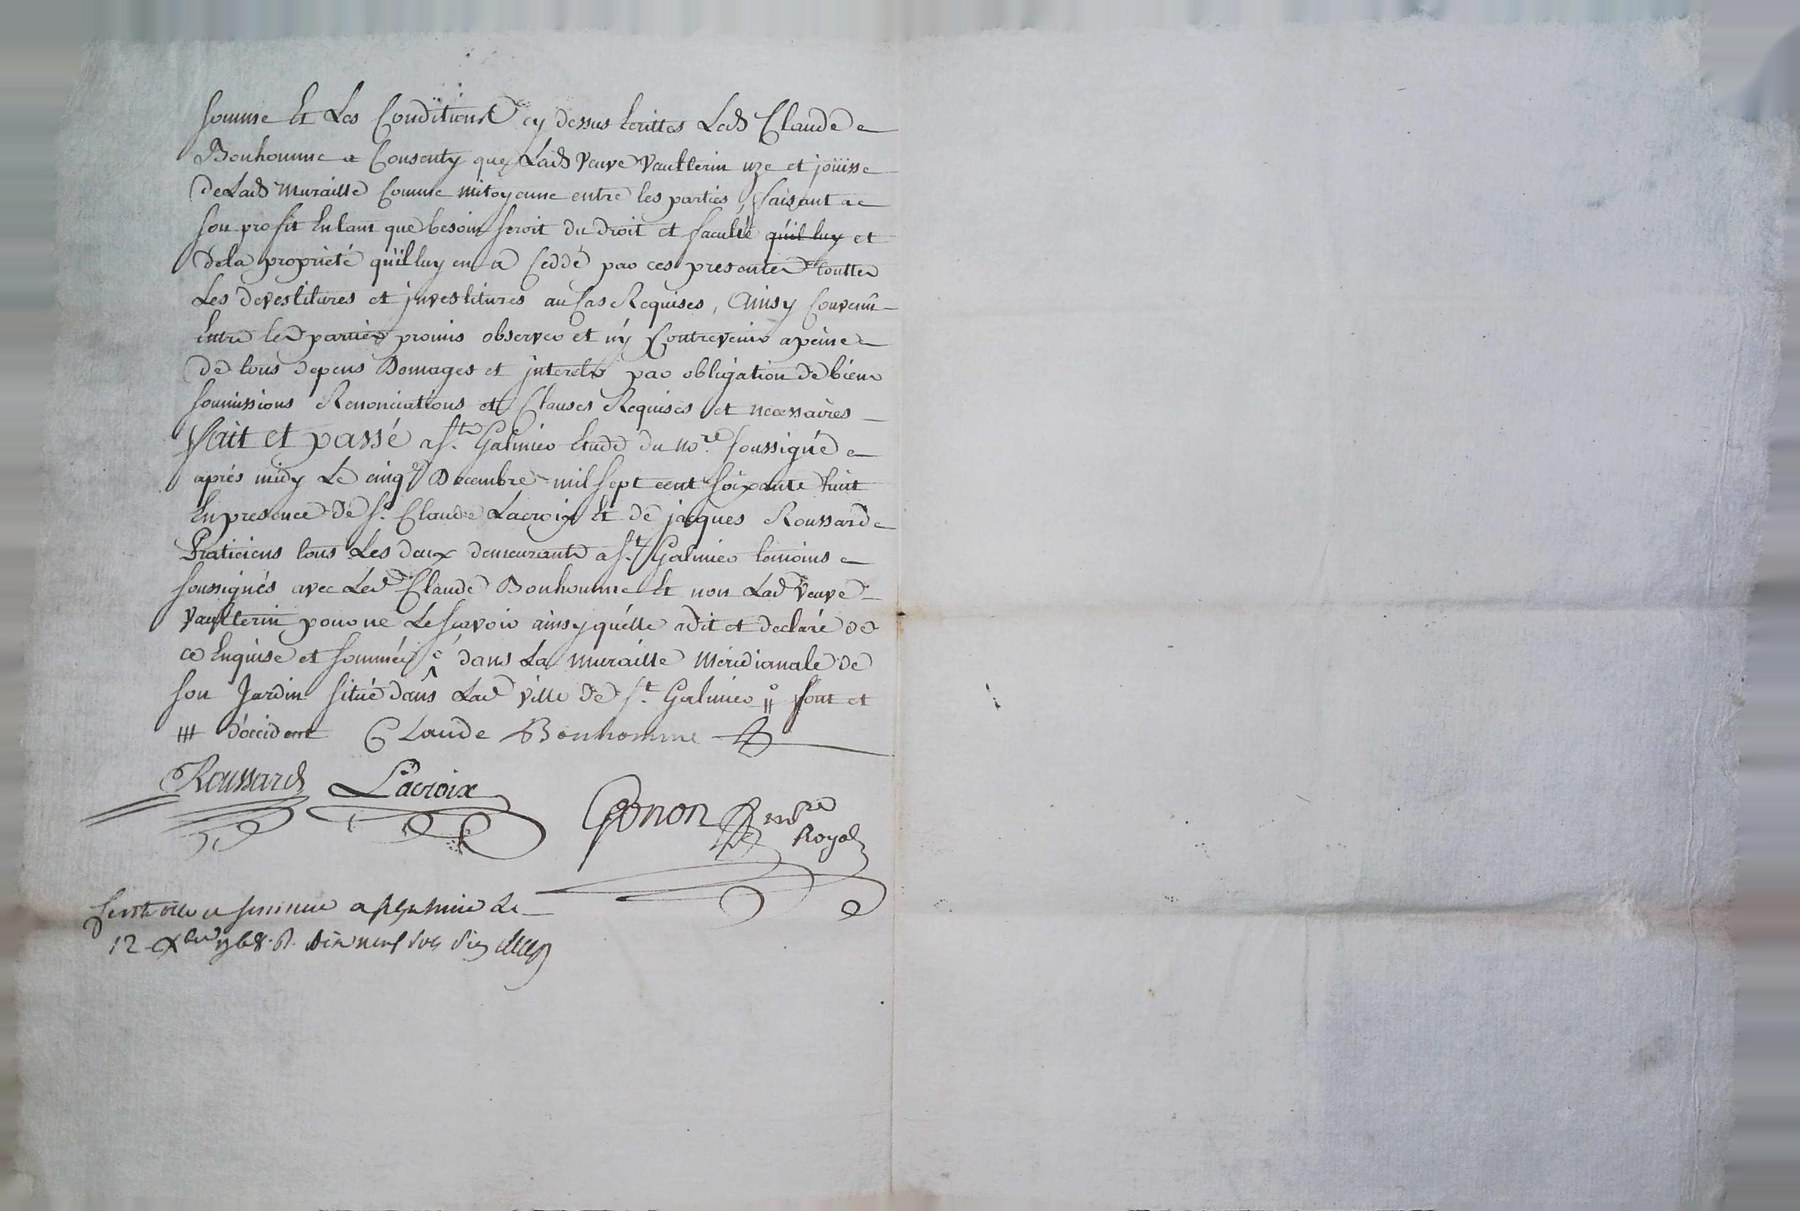 somme Et Les Conditions cy dessus Ecrittes Led Claude
Bonhomme a Consenty que Lad veuve vaulterin uze et joüisse
de Lad muraille Comme mitoyenne entre les parties, faisant a
son profit Entant que besoin seroit du droit et faculté qu'il luy et
de la proprieté qu'il luy en a ceddé par ces presentes touttes
Les devestitures et jnvestitures au Cas Requises, Ainsy Convenu
Entre les parties promis observer et n'y Contrevenir a peine
de tous depens Domages et interets par obligation de biens
soumissions Renonciations et Clauses Requises et necessaires
Fait et passé a St. Galmier Etude du nore. soussigné
aprés midy Le cinq Decembre mil sept cent soixante huit
En presence de Sr. Claude Lacroix Et de jacques Roussard
Praticiens tous Les deux demeurants a St. Galmier temoins
soussignés avec Led Claude Bonhomme Et non Lad veuve
vaulterin pour ne Le scavoir ainsy qu'elle a dit et declaré de
ce Enquise et sommée dans La muraille Méridianale de
son Jardin situé dans Lad ville de St. Galmier font et
d'occident Claude Bonhomme
Roussard Lacroix
Gonon nore
Royal
a St Galmier Le
12 xbre 1768 R. dix neuf sols six